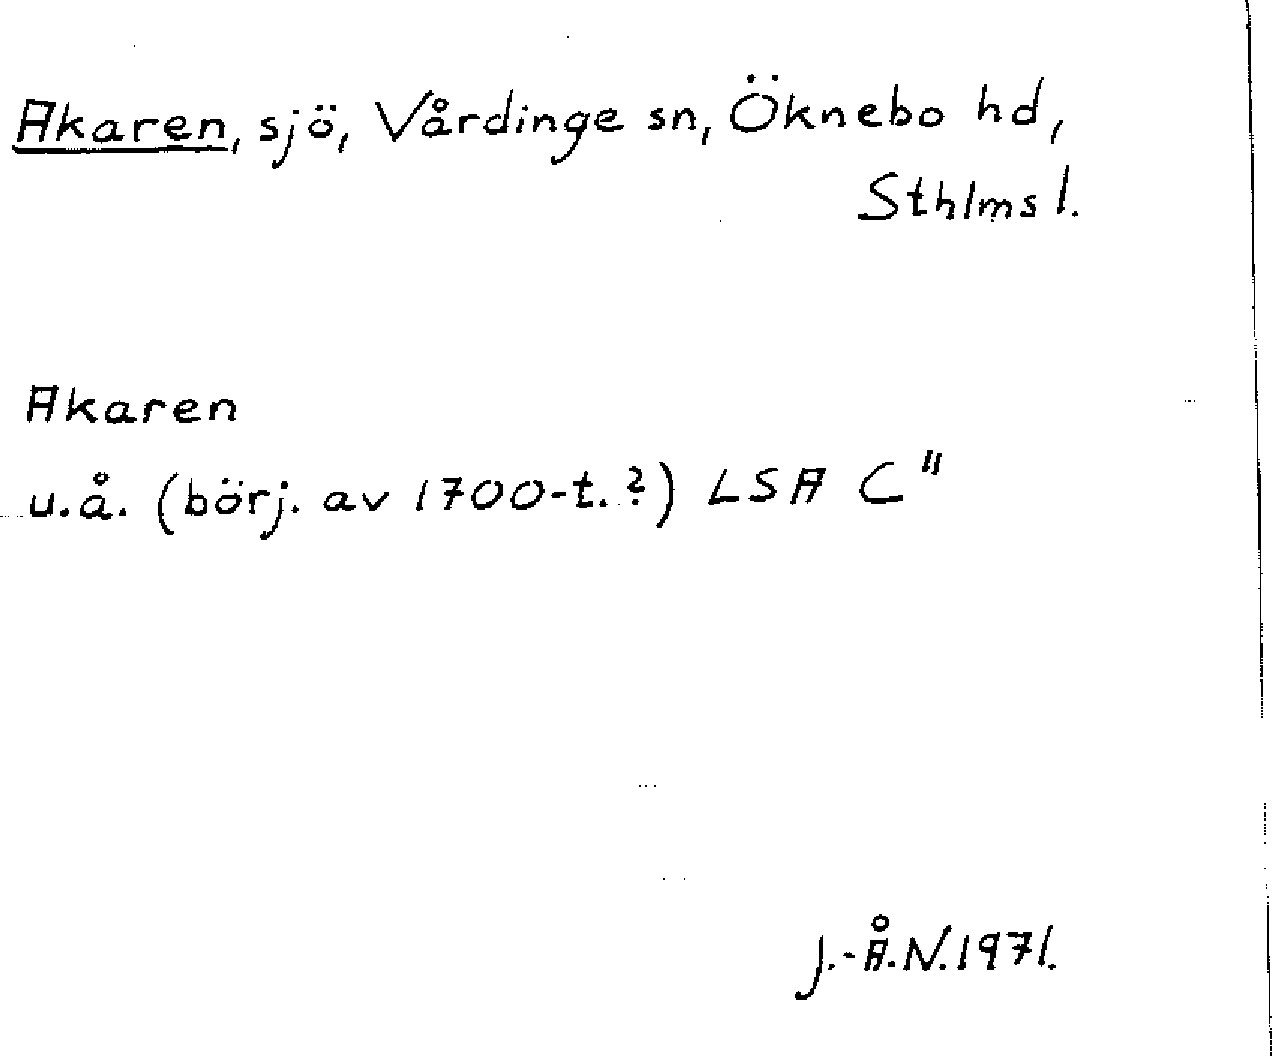 Akaren, sjö, Vårdinge sn, Öknebo hd,
Sthlms l.
Akaren
u.å. (börj. av 1700-t.?) LSA C"
J.-Å.N. 1971.